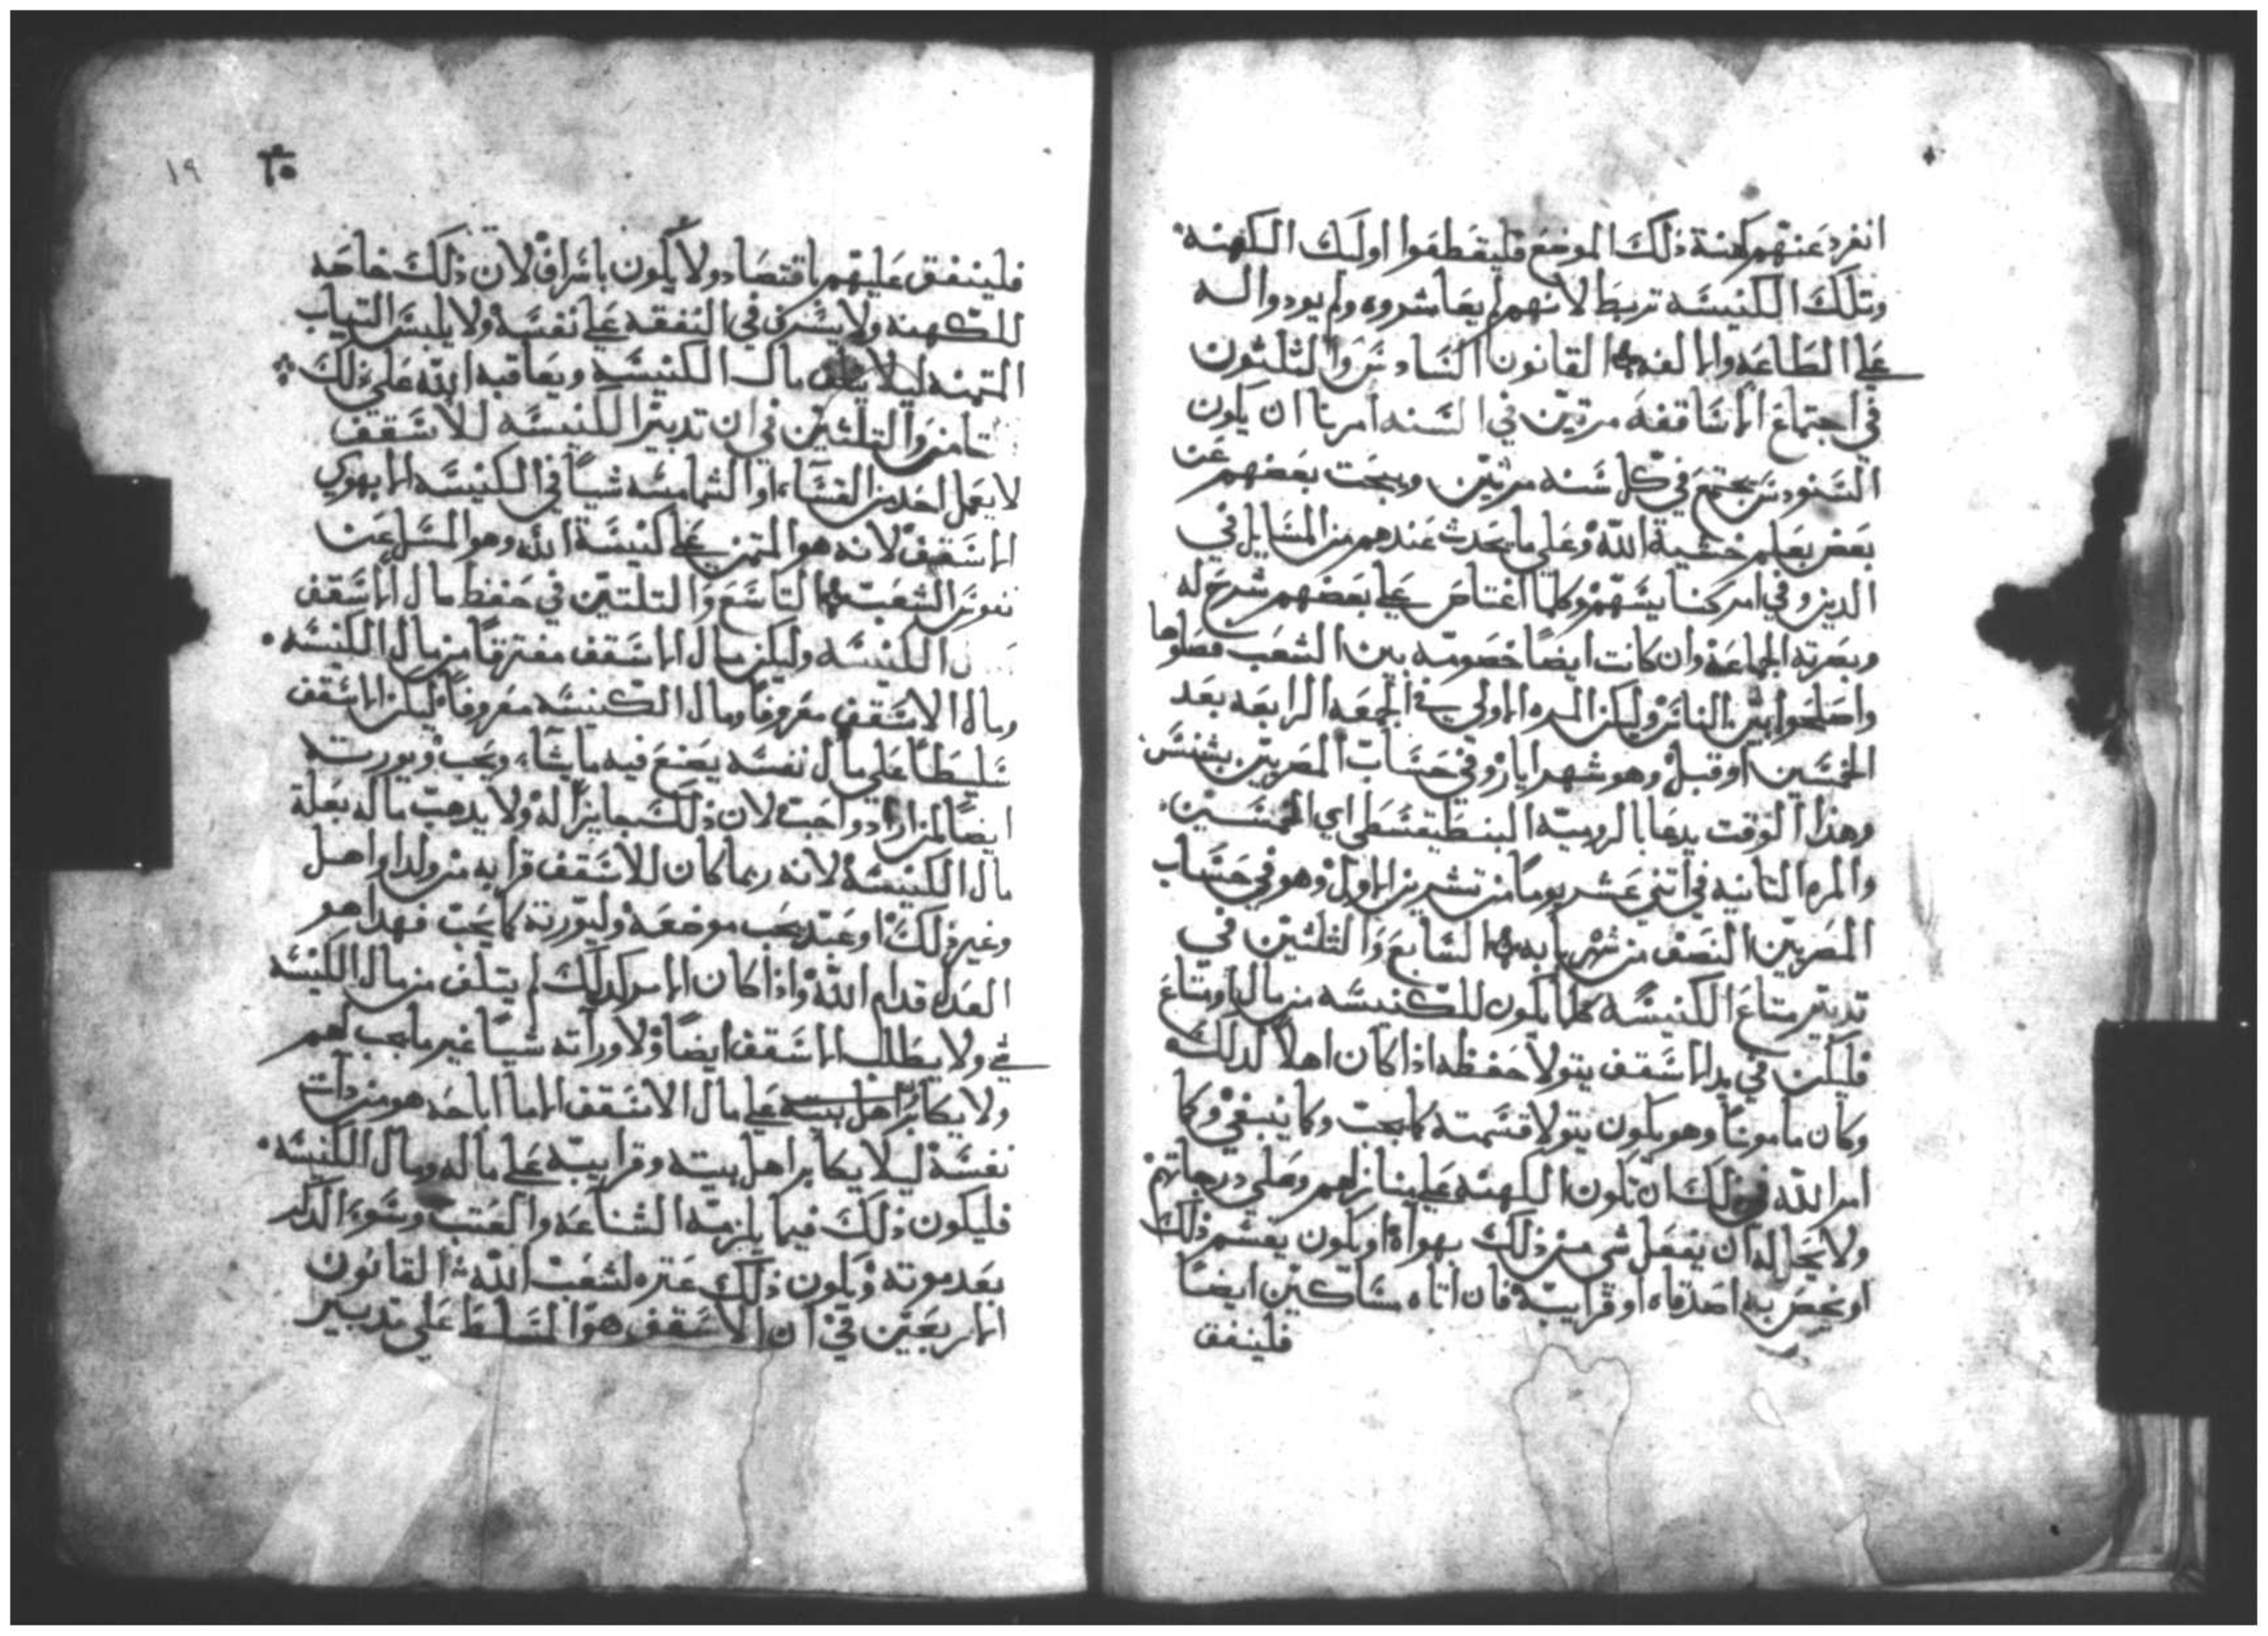 انفرد عنهم كهنة ذلك الموضع فليقطعوا اوليك الكهنه
وتلك الكنيسه تربط لانهم لم يعاشروه ولم يودوا اليه
علي الطاعه والالفه القانون السادس والثلثون
في اجتماع الاساقفه مرتين في السنه امرنا ان يكون
السنودس يجتمع في كل سنه مرتين ويبحت بعضهم عن
بعض بعلم خشية الله وعلي ما يحدث عندهم من المسايل في
الدين وفي امر كنايسهم وكلما اعتاص علي بعضهم شرح له
وبصرته الجماعه وان كانت ايضا خصومه بين الشعب فصلوها
واصلحوا بين الناس وليكن المره الاولي في الجمعه الرابعه بعد
الخمسين او قبل وهو شهر ايار وفي حساب المصريين بشنس
وهذا الوقت يدعا بالروميه البنطيقسطي اي الخمسين
والمره التانيه في اتني عشر يوما من تشرين الاول وهو في حساب
المصريين النصف من شهر بابه السابع والثلثين في
تدبير متاع الكنيسه كلما يكون للكنيسه من مال او متاع
فليكن في يد الاسقف يتولا حفظه اذا كان اهلا لدلك
وكان مامونا وهو يكون يتولا قسمته كما يجب وكما ينبغي وكما
امر الله في ذلك ان تكون الكهنه علي منازلهم وعلي درجاتهم
ولا يحل له ان يفعل شي من ذلك بهواه او يكون يقسم ذلك
او يخص به اصدقاه او قرايبه فان اتاه مساكين ايضا
فلينفق
١٩
فلينفق عليهم باقتصاد ولا يكون باسراف لان ذلك خاصه
للكهنه ولا يسرف في النفقه علي نفسه ولا يلبس التياب
التمنه ليلا يتلف مال الكنيسه ويعاقبه الله علي ذلك
التامن والتلثين في ان تدبير الكنيسه للاسقف
لا يعمل احد من القساء او الشمامسه شيا في الكنيسه الا بهوي
الاسقف لانه هو المتمن علي كنيسة الله وهو المسل عن
نفوس الشعب التاسع والتلتين في حفظ مال الاسقف
الكنيسه وليكن مال الاسقف مفترقا من مال الكنيسه
ومال الاسقف معروفا ومال الكنيسه معروفا ليكن الاسقف
سليطا علي مال نفسه يصنع فيه ما يشاء ويحب ويورته
ايضا لمن اراد واحب لان ذلك جايزا له ولا يدهب ماله بعلة
مال الكنيسه لانه ربما كان للاسقف قرابه من ولد او اهل
وغير ذلك او عبد يحب موضعه وليورته كما يحب فهدا هو
العدل قدام الله واذا كان الامر كدلك لم يتلف من مال الكنيسه
شي ولا يطالب الاسقف ايضا ولا وراته شيا غير ما يجب لهم
ولا يكابر اهل بيته علي مال الاسقف الا ما اباحه هو من دات
نفسه ليلا يكابر اهل بيته وقرابيه علي ماله ومال الكنيسه
فليكون ذلك فيما يلزمه الشناعه والعتب وسوء الدكر
بعد موته ويكون ذلك عتره لشعب الله القانون
الاربعين في ان الاسقف هو المسلط علي تدبير